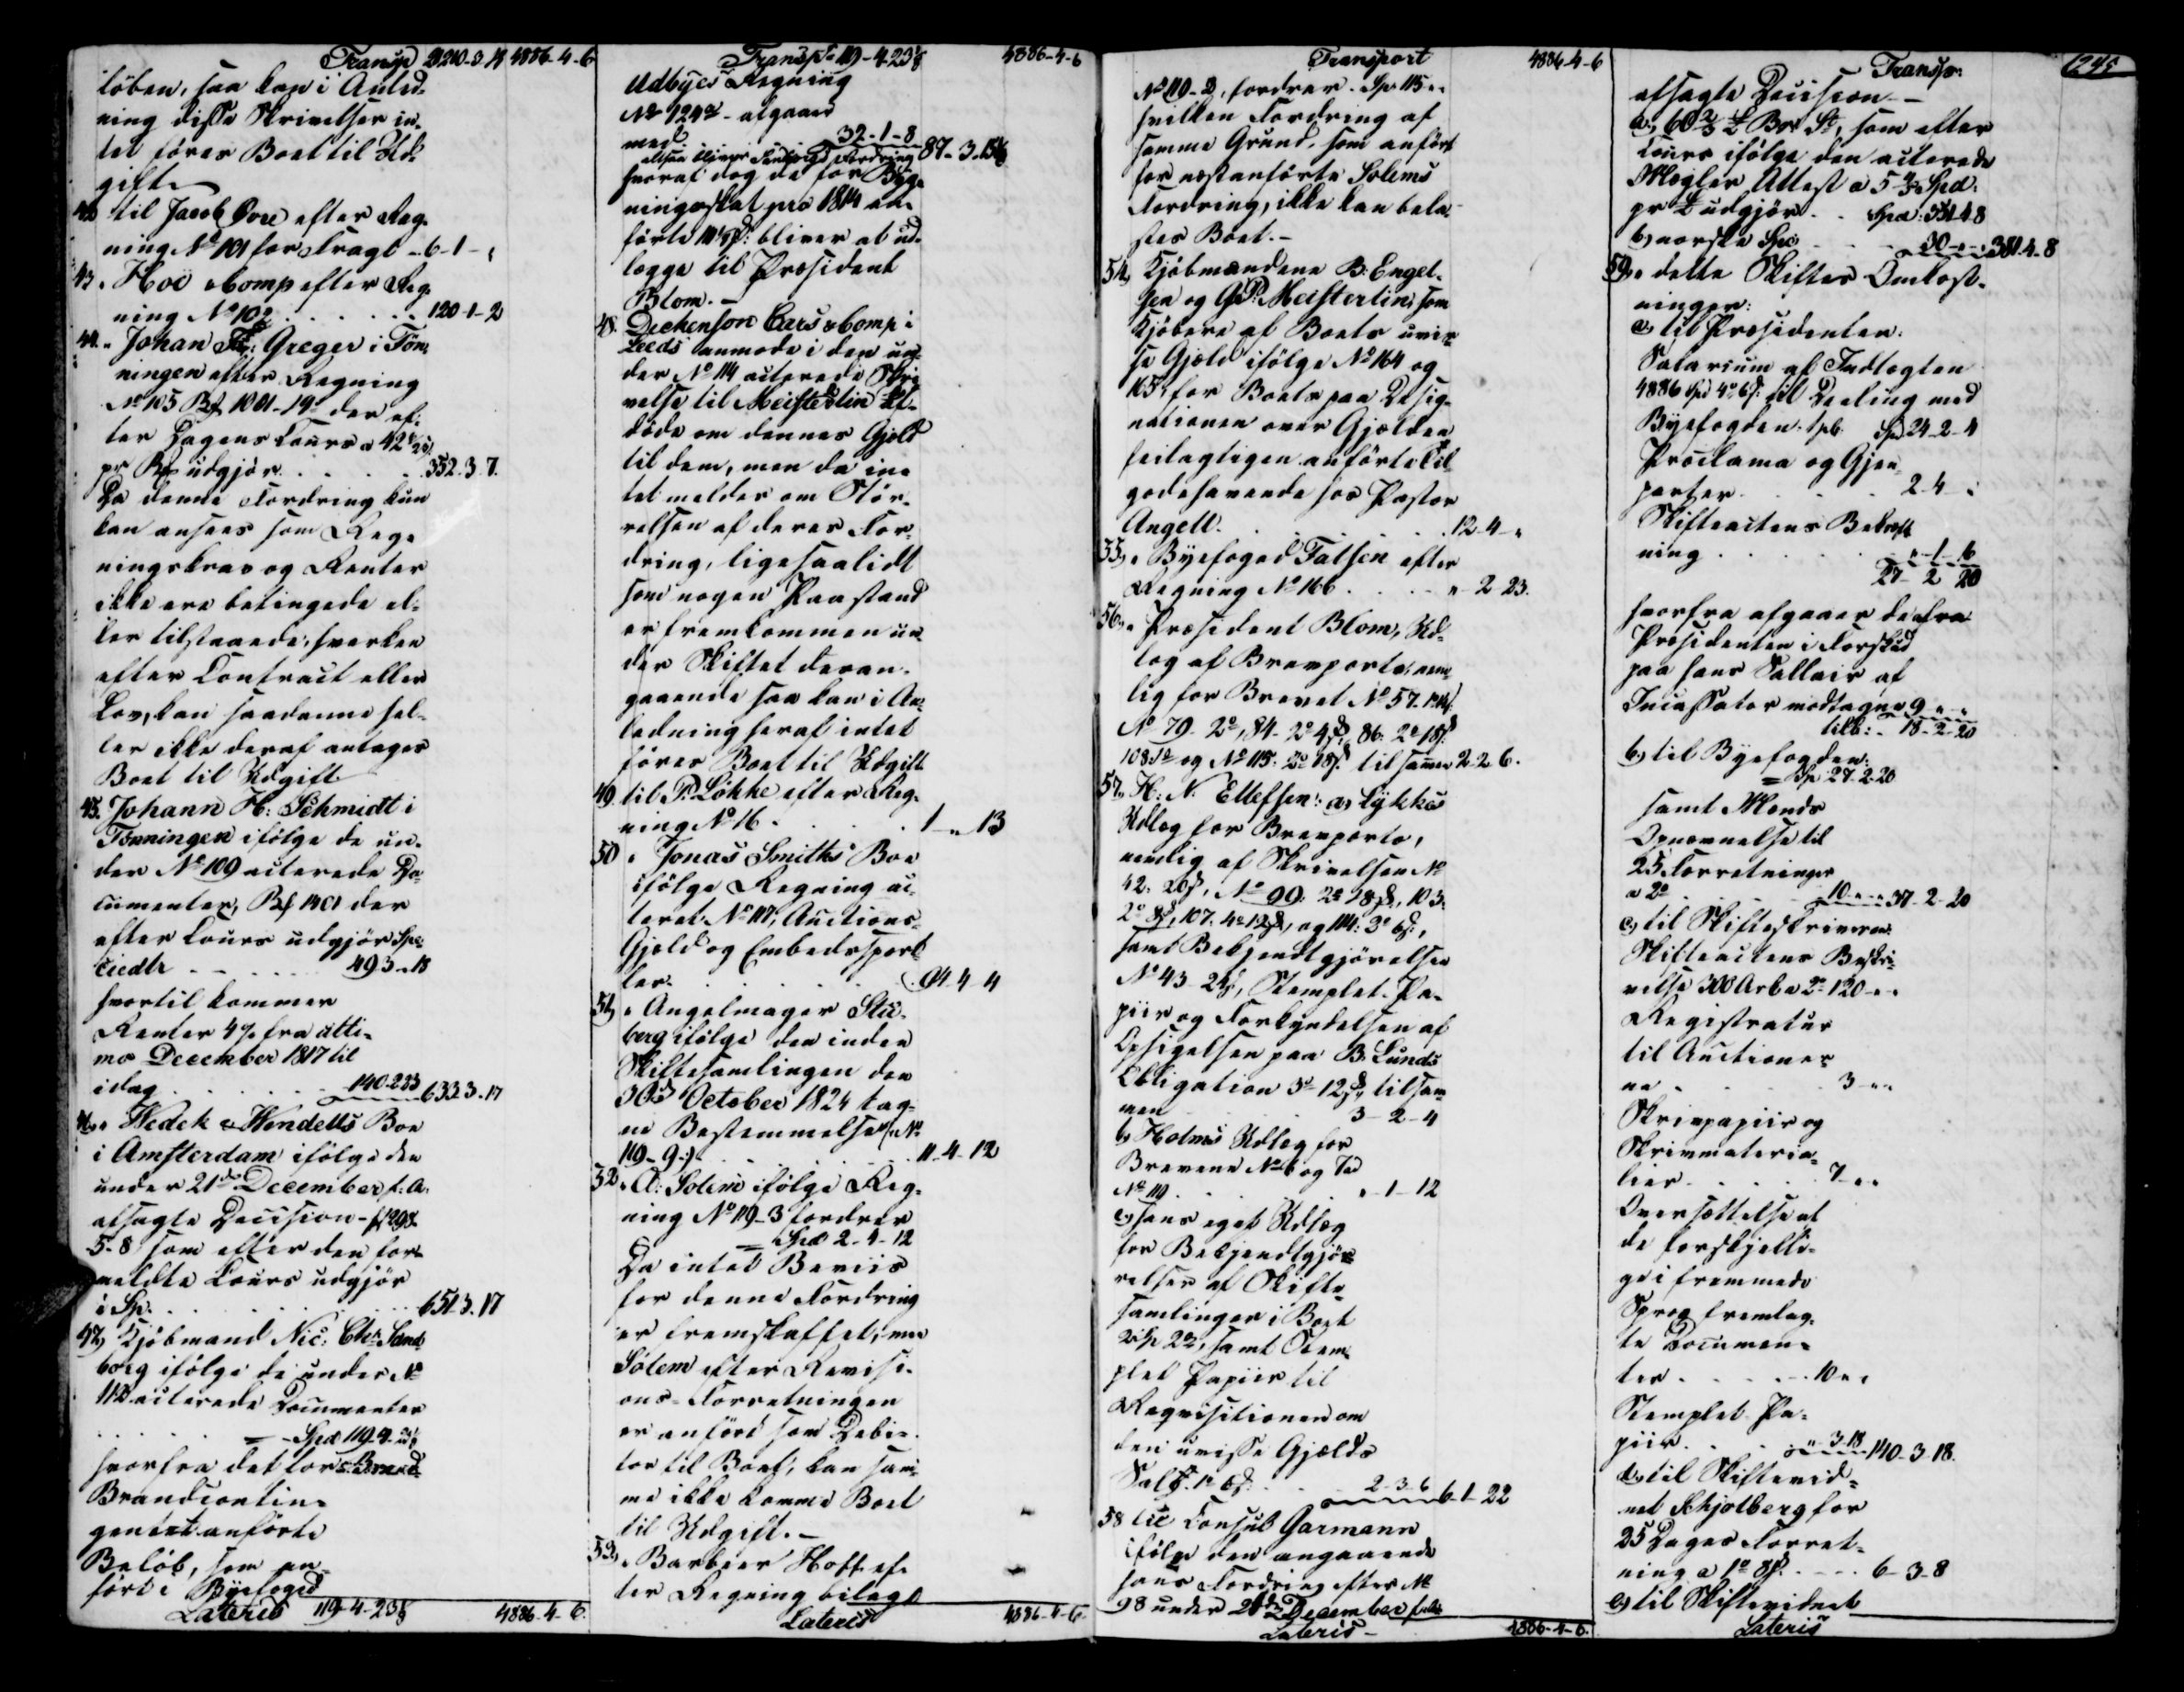 Transp 4886-4-6
løben, saa kan i Anled-
ning disse Skrivelser in-
tet føres Boet til Ud-
gift
til Jacob Dore efter Reg-
ning No 101 for Fragt - 6-1-"
43. " Høe & Comp efter Reg-
ning No 102 . . . . . . 120-1-2
44. " Johan Greger i Tøn-
ningen efter Regning
No 105 1001-14 der ef-
ter Dagens Cours a 42
pr udgjør . . . . . 352.3.7.
Da denne Fordring kun
kan ansees som Reg-
ningskrav og Renter
ikke ere betingede el-
ler tilstaaede, hverken
efter Contract eller
Lov, kan saadanne hel-
ler ikke deraf antages
Boet til Udgift
45. Johann H: Schmidt i
Tønningen ifølge de un-
der No 109 acterede Do-
cumenter, 1401 der
efter Cours udgjør Spe-
ciedlr - - . . . . 493-"18
hvortil kommer
Renter 4% fra ulti-
mo December 1817 til
idag . . . . . 140-2-23 633.3.17
46, " Hedek & Wendells Boe
i Amsterdam ifølge den
under 21de December f: A:
afsagte Decision -
5-8 som efter den for-
meldte Cours udgjør
i Sp. . . . . . . . . 651.3.17
47, Kjøbmand Nic: Chr: Sand-
borg ifølge de under No
112 acterede Documenter
. . . . . = Spd 119.4.
hvorfra det for
Brandcontin-
gentet anførte
Beløb, som an-
ført i Byefoged
Lateris 119-4-23 4886-4-6.
Transpt 119-4-23 4886-4-6
Udbyes Regning
No 124 - afgaaer
med 32-1-8
altsaa bliver Sandborgs Fordring 87-3-15
hvoraf dog de for Byg-
ningsskat pro 1814 an-
førte bliver at ud-
lægge til Præsident
Blom. -
48. Deckenson Cars & Comp i
Leeds anmode i den un-
der No 114 acterede Skri-
velse til Meisterlin Af-
døde om dennes Gjeld
til dem, men da in-
tet meldes om Stør-
relsen af deres For-
dring, ligesaalidt
som nogen Paastand
er fremkommen un-
der Skiftet deran-
gaaende saa kan i An-
ledning heraf intet
føres Boet til Udgift
49. til P. Løkke efter Reg-
ning No 16. . . . . . 1-"-13
50 " Jonas Smiths Boe
ifølge Regning ac-
teret No 117, Auctions-
Gjeld og Embedssport-
ler. . . . . . . 94-4-4
51, " Angelmager Stu-
berg ifølge den inden
Skiftesamlingen den
30de October 1824 tag-
ne Bestemmelse (No
119-9.) . . . . . . 11-4-12
52, " A: Solem ifølge Reg-
ning No 119-3 fordrer
= Spd 2-4-12
Da intet Beviis
for denne Fordring
er fremskaffet, men
Solem efter Revisi-
ons-Forretningen
er anført som Debi-
tor til Boet, kan sam-
me ikke komme Boet
til Udgift. -
53, " Barbeer Hoff ef-
ter Regning bilagt
Lateris 4886-4-6
Transport 4886-4-6
No 119-2, fordrer Sp 115"
hvilken Fordring af
samme Grund, som anført
for næstanførte Solems
Fordring, ikke kan bela-
stes Boet. -
54, Kjøbmændene B: Engel-
sen og G: P: Meisterlin som
Kjøbere af Boets uvis-
se Gjeld ifølge No 164 og
165, for Boets paa Desig-
nationen over Gjælden
feilagtigen anførte Til-
godehavende hos Pastor
Angell. . . . . . . 12-4-"
55, " Byefoged Falsen efter
Regning No 166 . . . . " 2 23.
56, " Præsident Blom, Ud-
læg af Brevporto, nem-
lig for Brevet No 57.
No 79- 2, 84- 2 4, 86: 2 18
108 og No 115: 2 18 tilsammen 2-2-6.
57, H: N: Ellefsen: a, Lykkes
Udlæg for Brevporto,
nemlig af Skrivelsen No
42: 20, No 99: 2 18, 103:
2 8, 107. 4 12, og 114: 3 6,
samt Bekjendtgjørelsen
No 43 - 24, Stemplet Pa-
piir og Forkyndelsen af
Opsigelsen paa B: Lunds
Obligation 3 12 tilsam-
men 3-2-4
b, Holms Udlæg for
Brevene No 6 og
No 110 . . . . . "-1-12
c, hans eget Udlæg
for Bekjendtgjø-
relser af Skifte-
samlinger i Boet
samt Stem-
plet Papiir til
Requisitionen om
den uvisse Gjælds
Salg . . . 2-3-6 6-1-22
58 til Consul Garmann
ifølge den angaaende
hans Fordring efter No
98 under 21de December
Lateris - 4886-4-6.
Transp: 1245
afsagte Decision -
a, 60 2/3 £ St, som efter
Cours ifølge den acterede
Mægler Attest a 5 Spd.
pr £ udgjør . . Spd: 351.4.8
b, norske Spd . . . 30-"-" 381.4.8
59, " dette Skiftes Omkost-
ninger:
a, til Præsidenten:
Salarium af Indtægten
4886 Spd 4 6 til Deeling med
Byefogden Spd 24-2-4
Proclama og Gjen-
parter . . . . 2-4-"
Skifteactens Bekræft-
ning . . . . . "-1-16
27-2-20
hvorfra afgaaer de fra
Præsidenten i Forskud
paa hans Sallair af
Incassator modtagne 9-"-"
tilb: - 18-2-20
b, til Byefogden:
= Sp 27.2.20
samt Mænds
Opnævnelse til
25 Forretninger
a 2 . . . 10-"-" 37-2-20
c, til Skifteskriveren:
Skifteactens Beskri-
velse 300 Ark a 2 120-"-"
Registratur
til Auctioner-
ne . . . . . . 3-"-"
Skrivpapiir og
Skrivmateria-
lier . . . . . . 7-"-"
Oversættelse af
de forskjelli-
ge i fremmede
Sprog fremlag-
te Documen-
ter . . . . . . 10-"-"
Stemplet Pa-
piir . . . . "-3-18 140-3-18.
d, til Skiftevid-
net Schjølberg for
25 Dages Forret-
ning a 1 8 . . . . 6-3-8
e, til Skiftevidnet
Lateris